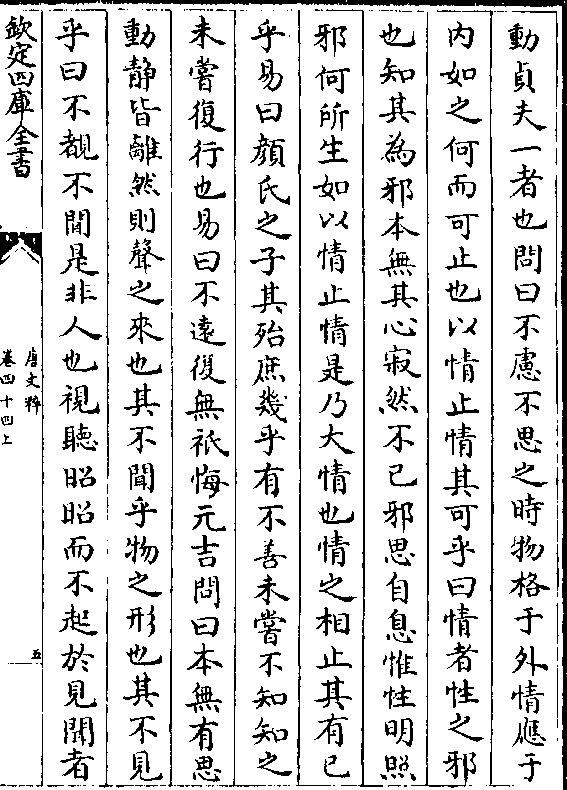 動貞夫一者也問曰不慮不思之時物格于外情應于
内如之何而可止也以情止情其可乎曰情者性之邪
也知其為邪本無其心寂然不已邪思自息惟性明照
邪何所生如以情止情是乃大情也情之相止其有已
乎易曰顔氏之子其殆庶幾乎有不善未嘗不知知之
未嘗復行也易曰不逺復無祇悔元吉問曰本無有思
動静皆離然則聲之來也其不聞乎物之形也其不見
乎曰不覩不聞是非人也視聽昭昭而不起於見聞者
欽定四庫全書
唐文粹
卷四十四上
五